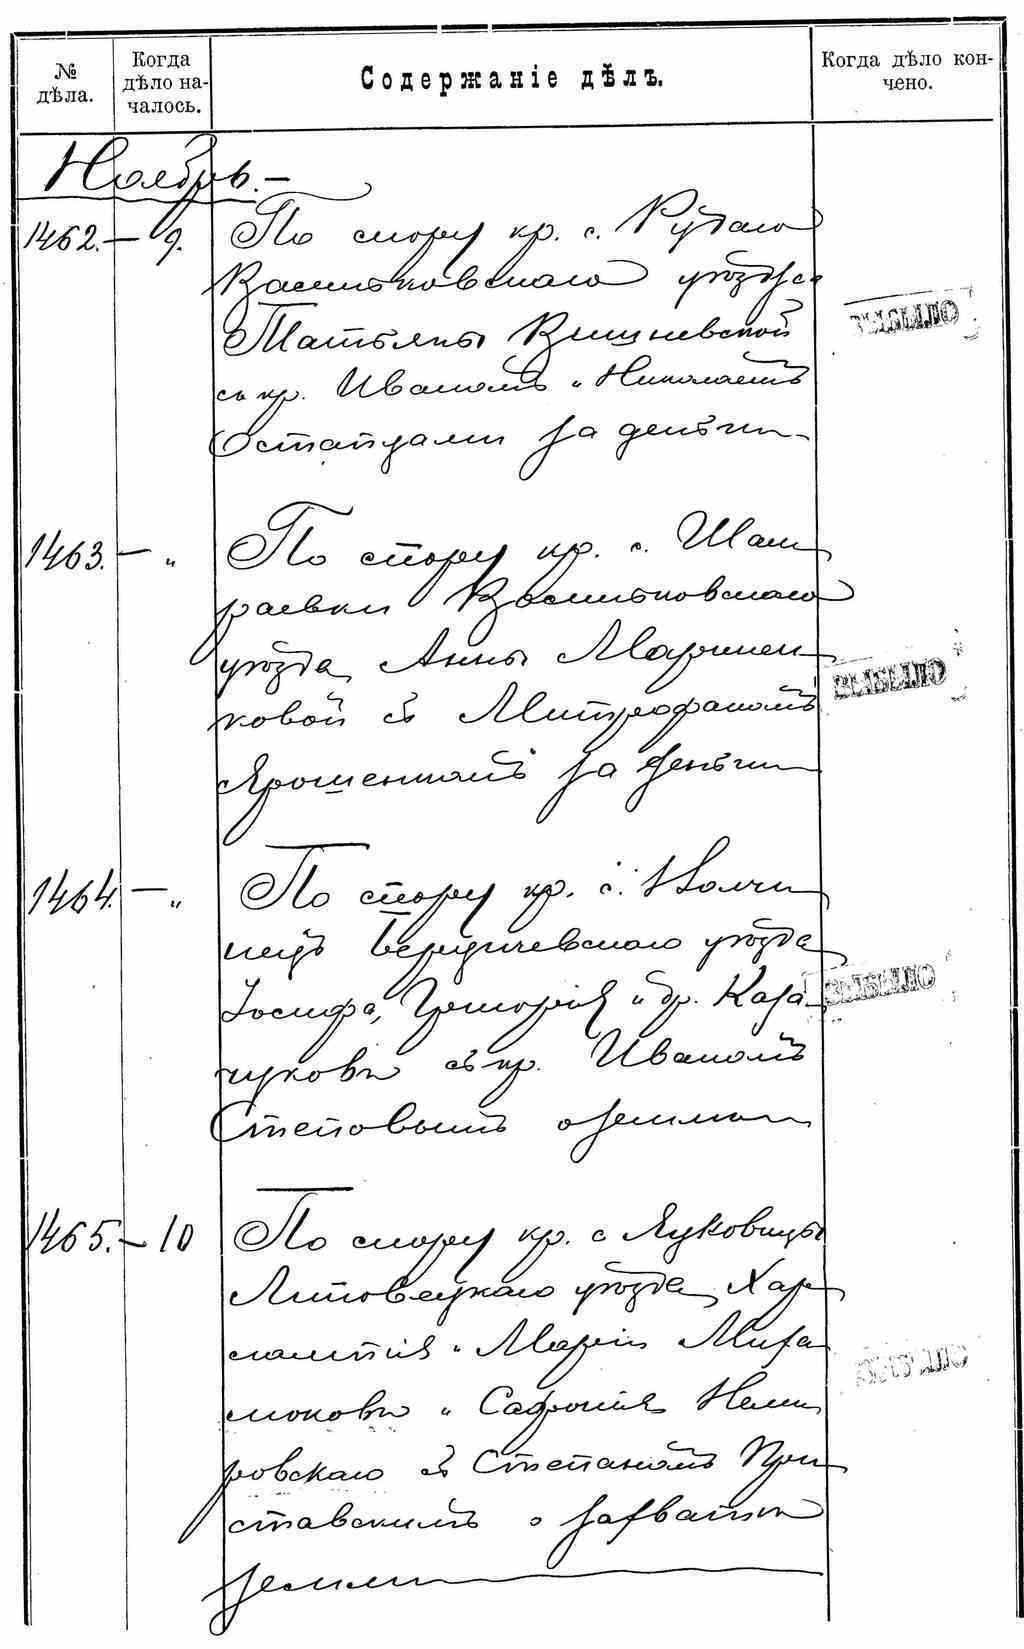 № дѣла.
Когда дѣло на-
чалось.
Содержаніе дѣлъ.
Когда дѣло кон-
чено.
Ноябрь.—
1462.— 9. По спору кр. с. Рудаго
Васильковскаго уѣзда
Татьяны Вишневской
съ кр. Иваномъ и Николаемъ
Остапцами за деньги.
1463. — „ По спору кр. с. Шам-
раевки Васильковскаго
уѣзда Анны Маринен-
ковой съ Митрофаномъ
Ярошенкомъ за деньги
1464. — „ По спору кр. с.
Бердичевскаго уѣзда
Іосифа, Григорія и др. Каза-
чуковъ съ кр. Иваномъ
Степовымъ о землѣ
1465. — 10 По спору кр. с Яцковицы
Липовецкаго уѣзда Хар-
лампія и Маріи
и Сафонія Неми-
ровскаго съ Степаномъ При-
ставскимъ о захватѣ
земли